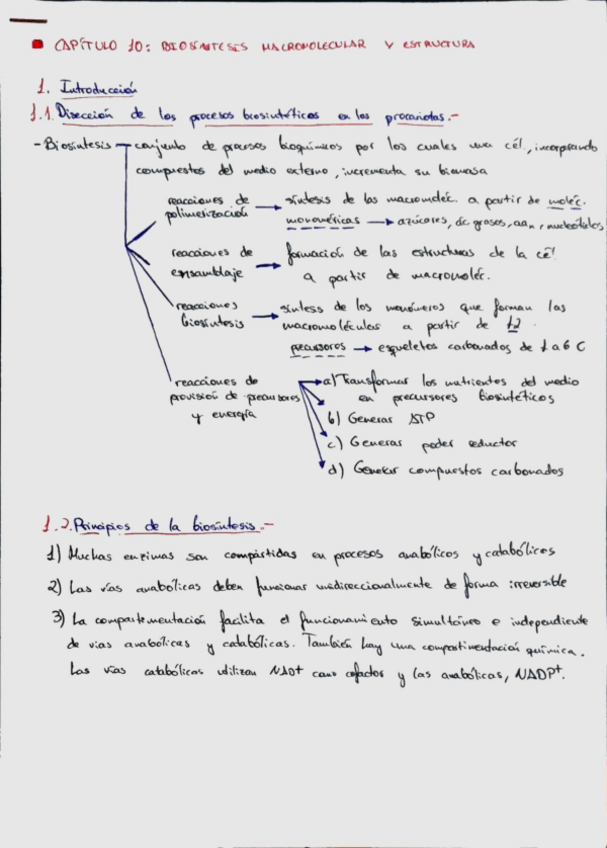 CAPÍTULO 10: BIOSÍNTESIS MACROMOLECULAR Y ESTRUCTURA
1. Introducción
1.1. Disección de los procesos biosintéticos en los procariotas.-
- Biosíntesis conjunto de procesos bioquímicos por los cuales una cél, incorporando
compuestos del medio externo, incrementa su biomasa
reacciones de polimerización → síntesis de las macromoléc. a partir de moléc.
monoméricas → azúcares, ác. grasos, aan, nucleótidos
reacciones de ensamblaje → formación de las estructuras de la cél
a partir de macromoléc.
reacciones biosíntesis → síntesis de los monómeros que forman las
macromoléculas a partir de 12
precursores → esqueletos carbonados de 1 a 6 C
reacciones de provisión de precursores y energía
a) Transformar los nutrientes del medio
en precursores biosintéticos
b) Generar ATP
c) Generar poder reductor
d) Generar compuestos carbonados
1.2. Principios de la biosíntesis.-
1) Muchas enzimas son compartidas en procesos anabólicos y catabólicos
2) Las vías anabólicas deben funcionar unidireccionalmente de forma irreversible
3) La compartimentación facilita el funcionamiento simultáneo e independiente
de vías anabólicas y catabólicas. También hay una compartimentación química.
Las vías catabólicas utilizan NAD+ como cofactor y las anabólicas, NADP+.